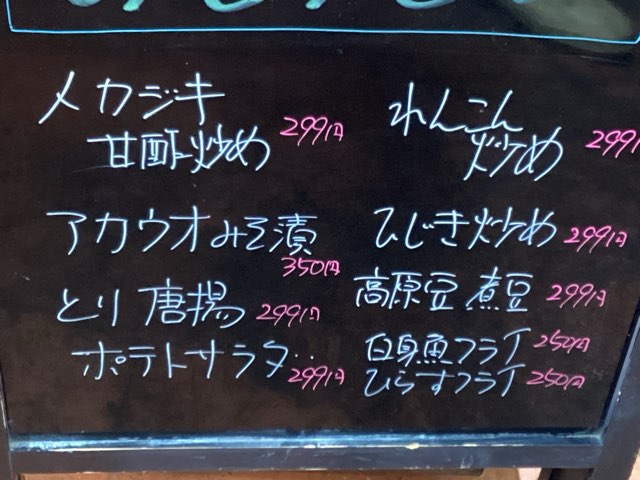 メカジキ
甘酢炒め 299円
アカウオみそ漬
350円
とり唐揚 299円
ポテトサラダ
299円
れんこん
炒め 299
ひじき炒め 299円
高原豆煮豆 299円
白身魚フライ 250円
ひらすフライ 250円